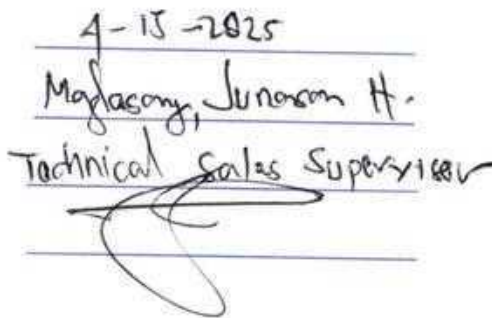 4-15-2025
Maglasang, Junasan H.
Technical Sales Supervisor